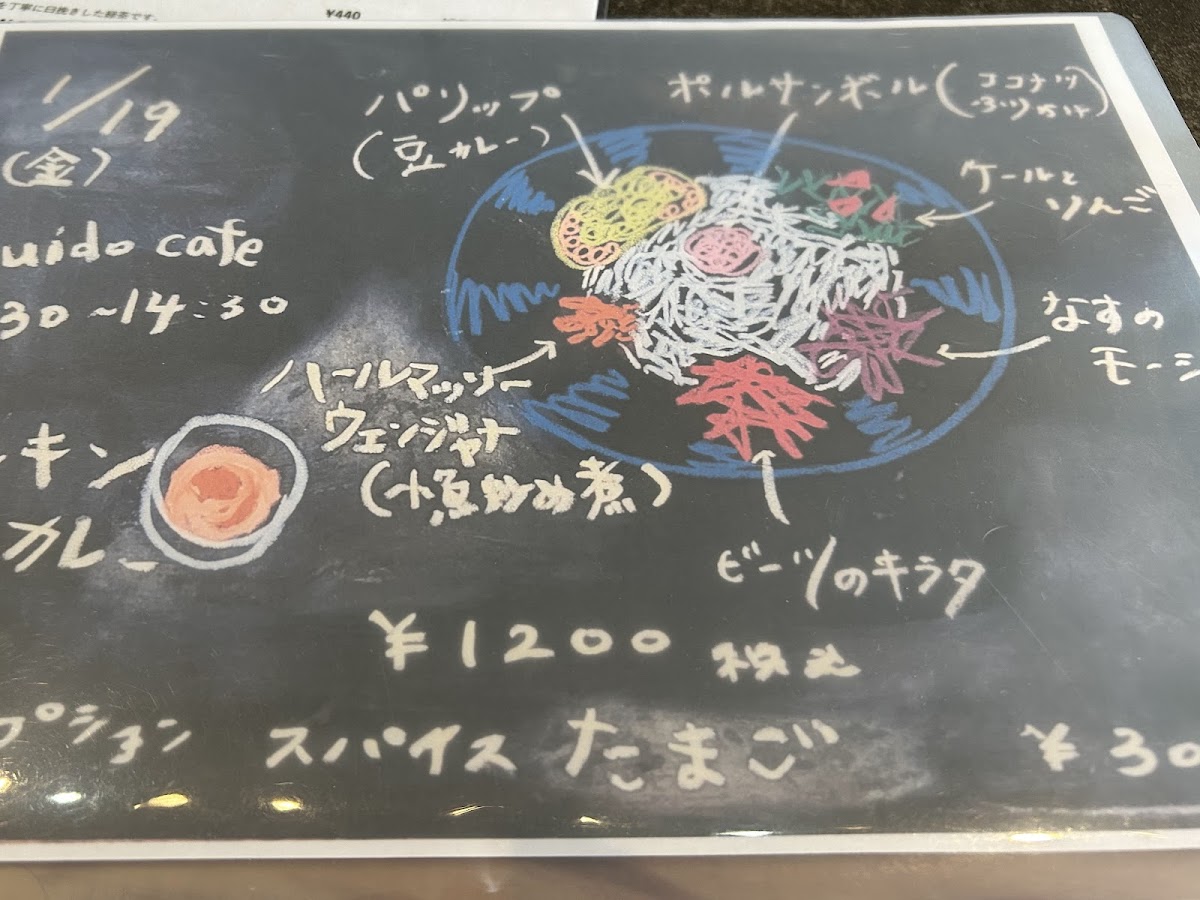 を丁寧に臼挽きした緑茶です。
¥440
1/19
(金)
uido cafe
30~14:30
パリップ
(豆カレー)
ポルサンボール(ココナツ
ふりかけ)
ケールと
りんご
なすの
モーシ
ハールマッソー
ウェンジャナ
(小魚炒め煮)
キン
カレー
ビーツのキラタ
¥1200 税込
プション スパイスたまご ¥30